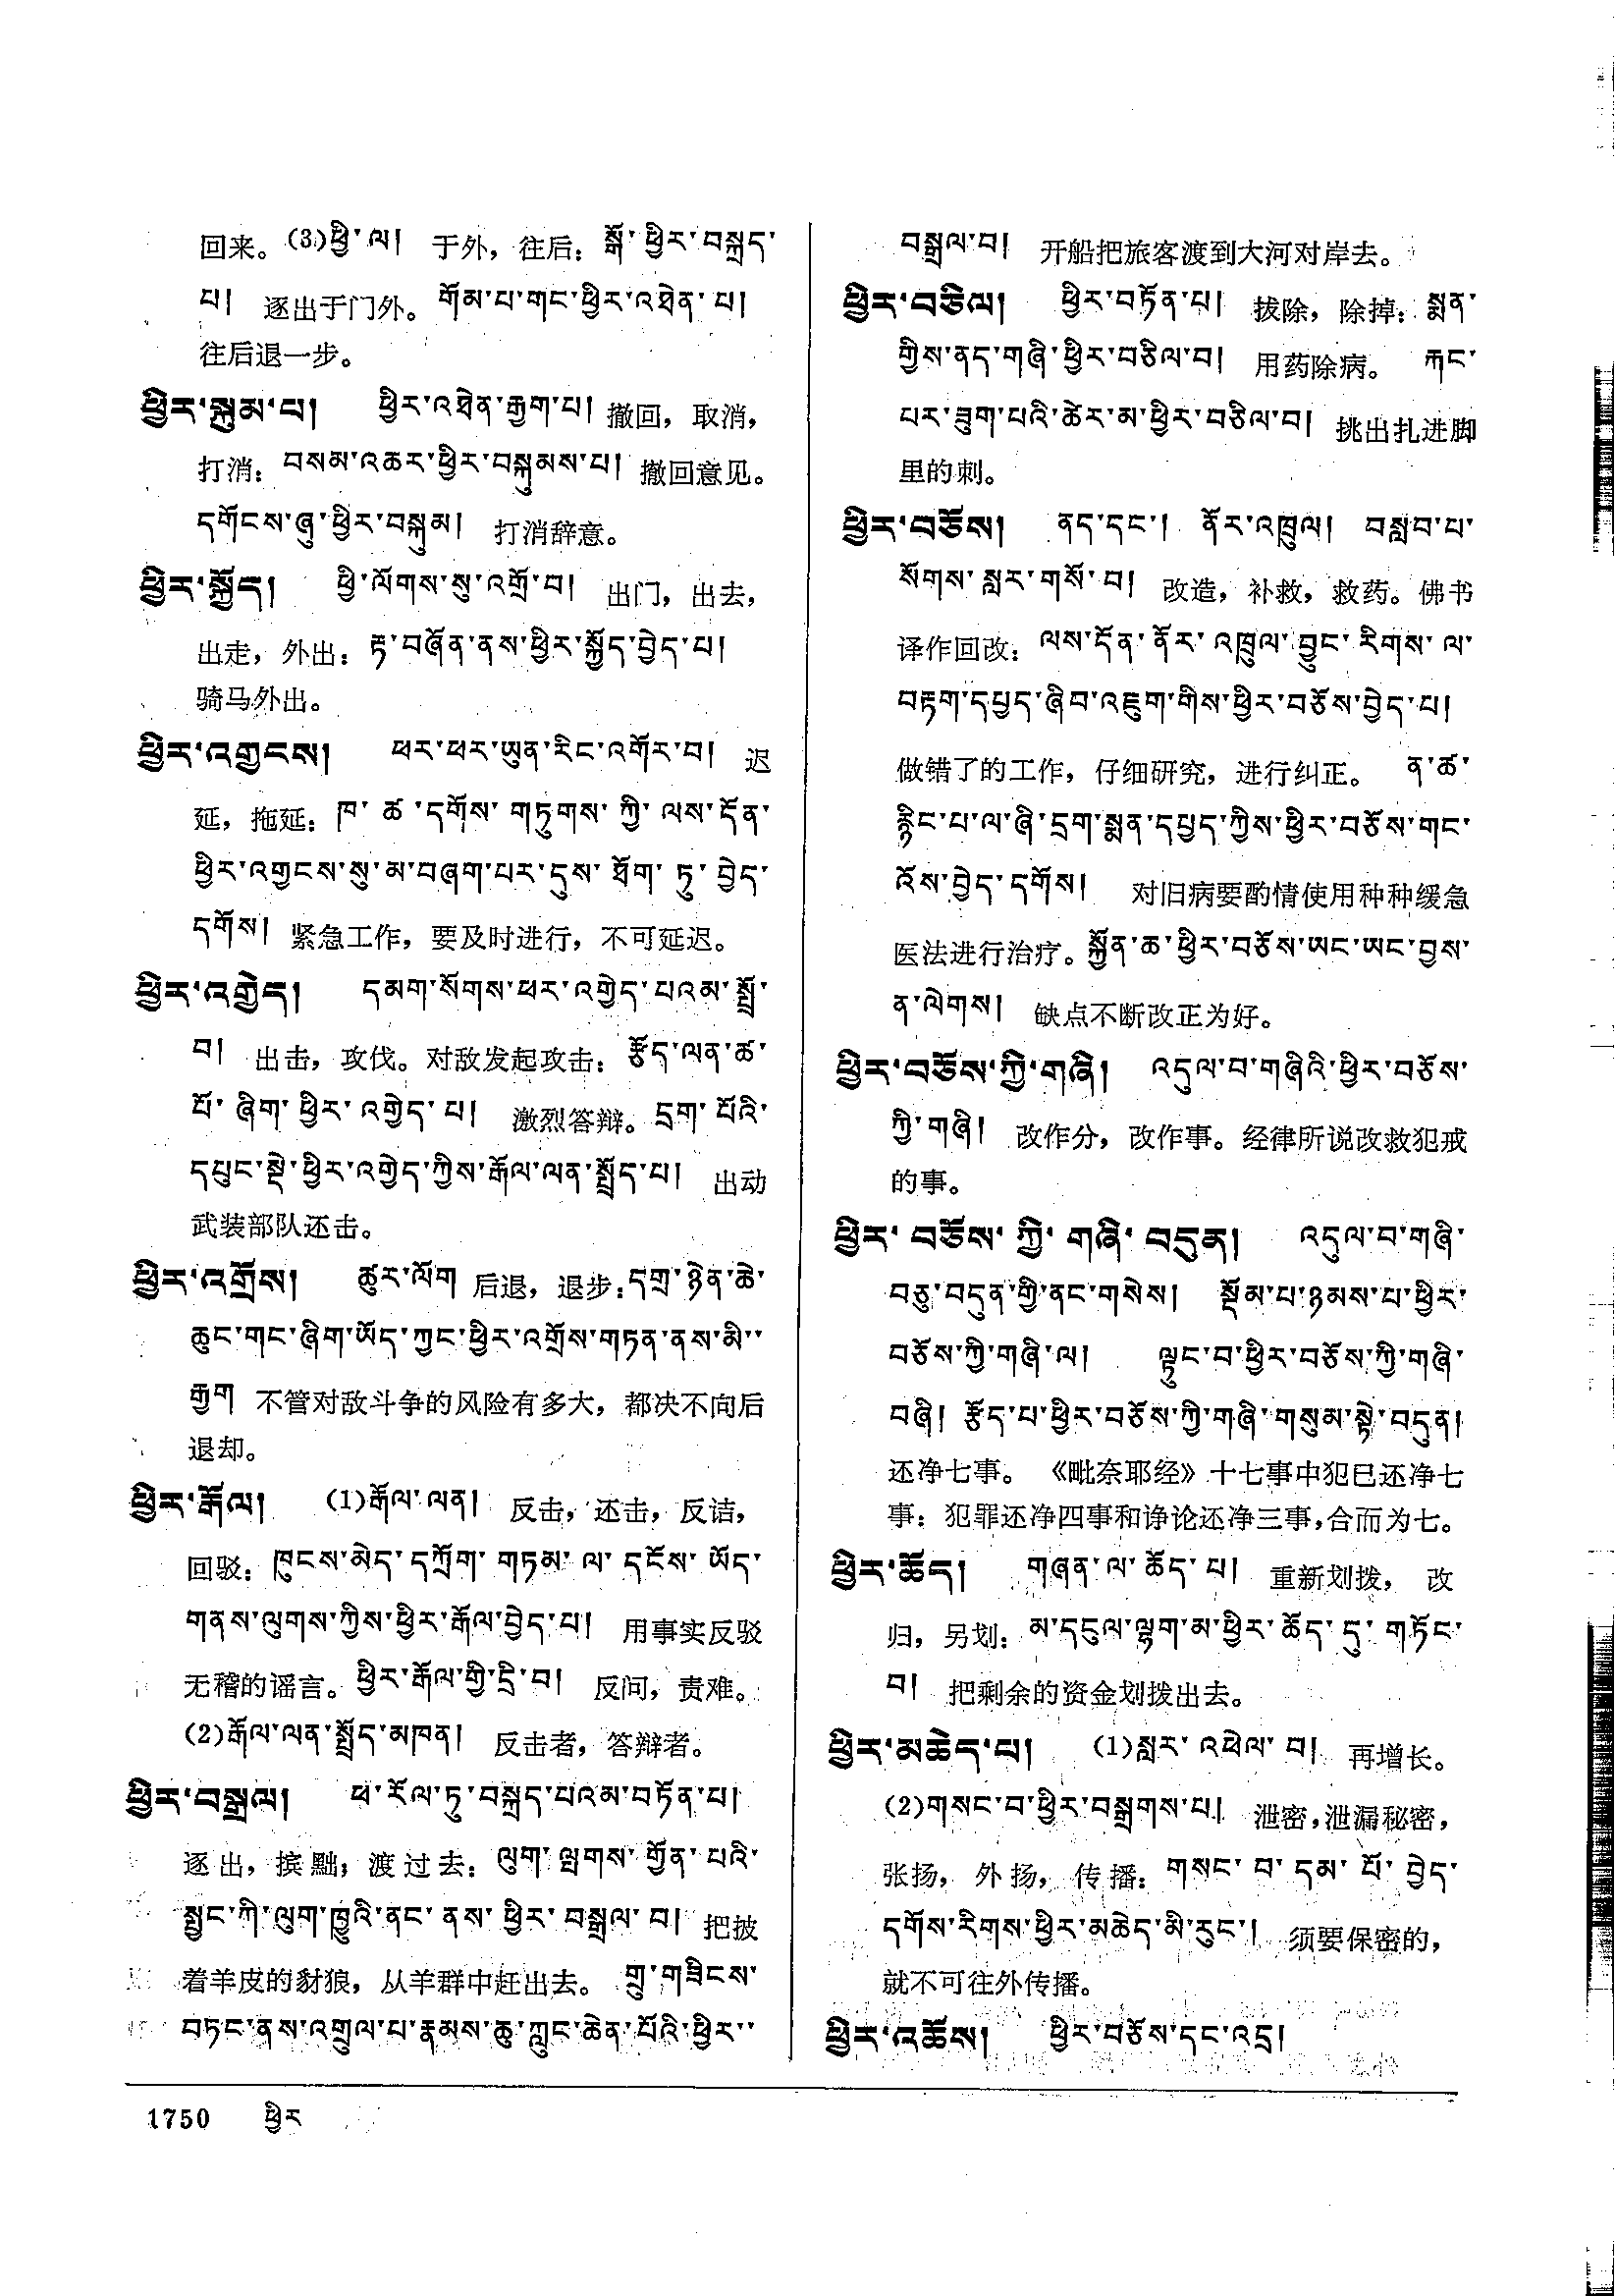 回来。(3)ཕྱི་ལ། 于外，往后：སྒོ་ཕྱིར་བསྐྲད་
པ། 逐出于门外。གོམ་པ་གང་ཕྱིར་འཐེན་པ།
往后退一步。
ཕྱིར་སྐུམ་པ། ཕྱིར་འཐེན་རྒྱག་པ། 撤回，取消，
打消：བསམ་འཆར་ཕྱིར་བསྐུམས་པ། 撤回意见。
དགོངས་ཞུ་ཕྱིར་བསྐུམ། 打消辞意。
ཕྱིར་སྐྱོད། ཕྱི་ལོགས་སུ་འགྲོ་བ། 出门，出去，
出走，外出：རྟ་བཞོན་ནས་ཕྱིར་སྐྱོད་བྱེད་པ།
骑马外出。
ཕྱིར་འགྱངས། ཕར་ཕར་ཡུན་རིང་འགོར་བ། 迟
延，拖延：ཁ་ཚ་དགོས་གཏུགས་ཀྱི་ལས་དོན་
ཕྱིར་འགྱངས་སུ་མ་བཞག་པར་དུས་ཐོག་ཏུ་བྱེད་
དགོས། 紧急工作，要及时进行，不可延迟。
ཕྱིར་འགྱེད། དམག་སོགས་ཕར་འགྱེད་པའམ་སྤྲོ་
བ། 出击，攻伐。对敌发起攻击：རྩོད་ལན་ཚ་
པོ་ཞིག་ཕྱིར་འགྱེད་པ། 激烈答辩。དྲག་པོའི་
དཔུང་སྡེ་ཕྱིར་འགྱེད་ཀྱིས་རྒོལ་ལན་སྤྲོད་པ། 出动
武装部队还击。
ཕྱིར་འགྲོས། ཚུར་ལོག 后退，退步：དགྲ་ཉེན་ཆེ་
ཆུང་གང་ཞིག་ཡོད་ཀྱང་ཕྱིར་འགྲོས་གཏན་ནས་མི་་
རྒྱག 不管对敌斗争的风险有多大，都决不向后
退却。
ཕྱིར་རྒོལ། (1)རྒོལ་ལན། 反击，还击，反诘，
回驳：ཁུངས་མེད་དཀྲོག་གཏམ་ལ་དངོས་ཡོད་
གནས་ལུགས་ཀྱིས་ཕྱིར་རྒོལ་བྱེད་པ། 用事实反驳
无稽的谣言。ཕྱིར་རྒོལ་གྱི་དྲི་བ། 反问，责难。
(2)རྒོལ་ལན་སྤྲོད་མཁན། 反击者，答辩者。
ཕྱིར་བསྒྲལ། ཕ་རོལ་ཏུ་བསྐྲད་པའམ་བཏོན་པ།
逐出，摈黜；渡过去：ལུག་ལྤགས་གྱོན་པའི་
སྤྱང་ཀི་ལུག་ཁྱུའི་ནང་ནས་ཕྱིར་བསྒྲལ་བ། 把披
着羊皮的豺狼，从羊群中赶出去。གྲུ་གཟིངས་
བཏང་ནས་འགྲུལ་པ་རྣམས་ཆུ་ཀླུང་ཆེན་པོའི་ཕྱིར་་
བསྒྲལ་བ། 开船把旅客渡到大河对岸去。
ཕྱིར་བཅིལ། ཕྱིར་བཏོན་པ། 拔除，除掉：སྨན་
གྱིས་ནད་གཞི་ཕྱིར་བཅིལ་བ། 用药除病。 རྐང་
པར་ཟུག་པའི་ཚེར་མ་ཕྱིར་བཅིལ་བ། 挑出扎进脚
里的刺。
ཕྱིར་བཅོས། ནད་དང་། ནོར་འཁྲུལ། བསླབ་པ་
སོགས་སླར་གསོ་བ། 改造，补救，救药。佛书
译作回改：ལས་དོན་ནོར་འཁྲུལ་བྱུང་རིགས་ལ་
བརྟག་དཔྱད་ཞིབ་འཇུག་གིས་ཕྱིར་བཅོས་བྱེད་པ།
做错了的工作，仔细研究，进行纠正。 ན་ཚ་
རྙིང་པ་ལ་ཞི་དྲག་སྨན་དཔྱད་ཀྱིས་ཕྱིར་བཅོས་གང་
འོས་བྱེད་དགོས། 对旧病要酌情使用种种缓急
医法进行治疗。སྐྱོན་ཆ་ཕྱིར་བཅོས་ཡང་ཡང་བྱས་
ན་ལེགས། 缺点不断改正为好。
ཕྱིར་བཅོས་ཀྱི་གཞི། འདུལ་བ་གཞིའི་ཕྱིར་བཅོས་
ཀྱི་གཞི། 改作分，改作事。经律所说改救犯戒
的事。
ཕྱིར་བཅོས་ཀྱི་གཞི་བདུན། འདུལ་བ་གཞི་
བཅུ་བདུན་གྱི་ནང་གསེས། སྡོམ་པ་ཉམས་པ་ཕྱིར་
བཅོས་ཀྱི་གཞི་ལ། ལྟུང་བ་ཕྱིར་བཅོས་ཀྱི་གཞི་
བཞི། རྩོད་པ་ཕྱིར་བཅོས་ཀྱི་གཞི་གསུམ་སྟེ་བདུན།
还净七事。《毗奈耶经》十七事中犯已还净七
事：犯罪还净四事和诤论还净三事，合而为七。
ཕྱིར་ཆོད། གཞན་ལ་ཆོད་པ། 重新划拨， 改
归，另划：མ་དངུལ་ལྷག་མ་ཕྱིར་ཆོད་དུ་གཏོང་
བ། 把剩余的资金划拨出去。
ཕྱིར་མཆེད་པ། (1)སླར་འཕེལ་བ། 再增长。
(2)གསང་བ་ཕྱིར་བསྒྲགས་པ། 泄密，泄漏秘密，
张扬，外扬，传播：གསང་བ་དམ་པོ་བྱེད་
དགོས་རིགས་ཕྱིར་མཆེད་མི་རུང་། 须要保密的，
就不可往外传播。
ཕྱིར་འཆོས། ཕྱིར་བཅོས་དང་འདྲ།
1750 ཕྱིར